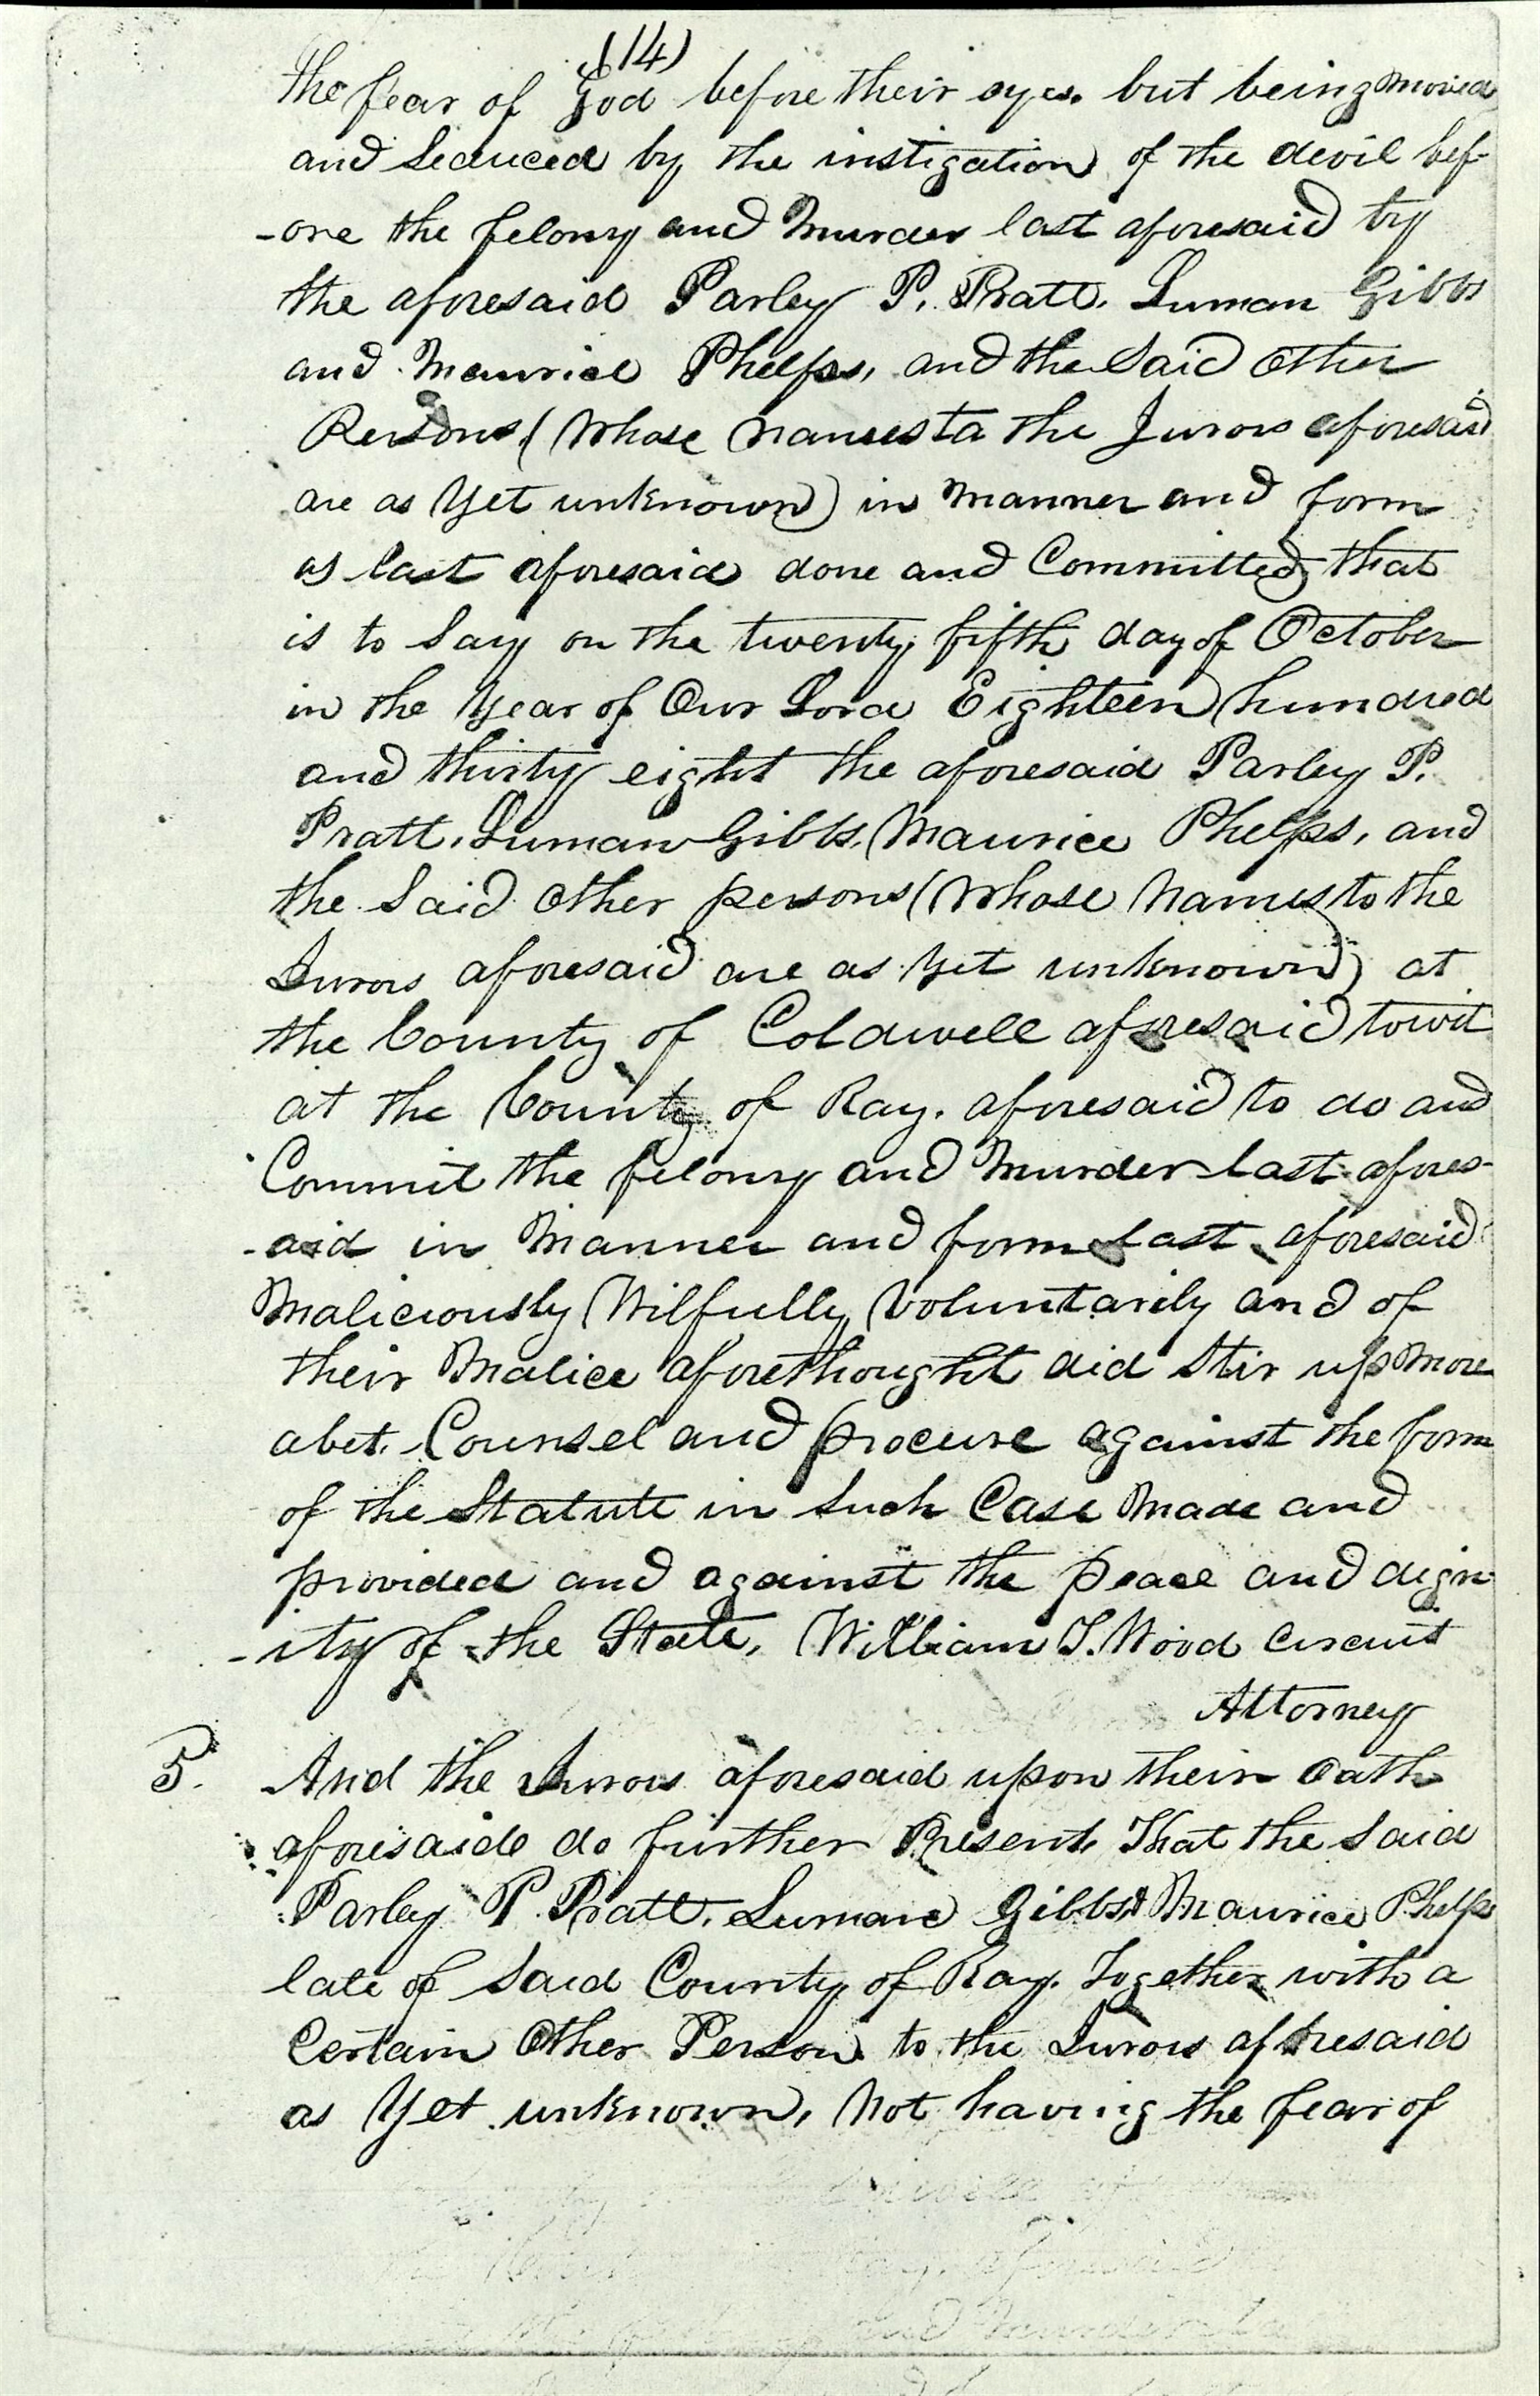 (14)
the fear of God before their eyes. but being moved
and Seduced by the instigation of the devil bef-
-ore the felony and Murder last aforesaid by
the aforesaid Parley P. Pratt. Luman Gibbs
and Maurice Phelps, and the Said Other
Persons (Whose Names to the Jurors aforesaid
are as Yet unknown) in Manner and form
as last aforesaid done and Committed that
is to Say on the twenty fifth day of October
in the Year of Our Lord Eighteen hundred
and thirty eight the aforesaid Parley P.
Pratt. Luman Gibbs. Maurice Phelps, and
the Said Other persons (Whose Names to the
Jurors aforesaid are as Yet unknown) at
the County of Coldwell aforesaid towit
at the County of Ray. aforesaid to do and
Commit the felony and Murder last afores-
-aid in Manner and form last aforesaid
Maliciously Wilfully Voluntarily and of
their Malice aforethought did Stir up More
abet. Counsel and procure against the form
of the Statute in Such Case Made and
provided and against the peace and dign-
-ity of the State, William T. Wood Circuit
Attorney
5. And the Jurors aforesaid upon their Oath
aforesaid do further Present That the Said
Parley P. Pratt. Luman Gibbs & Maurice Phelps
late of Said County of Ray. Together with a
Certain Other Person to the Jurors aforesaid
as Yet unknown, Not having the fear of